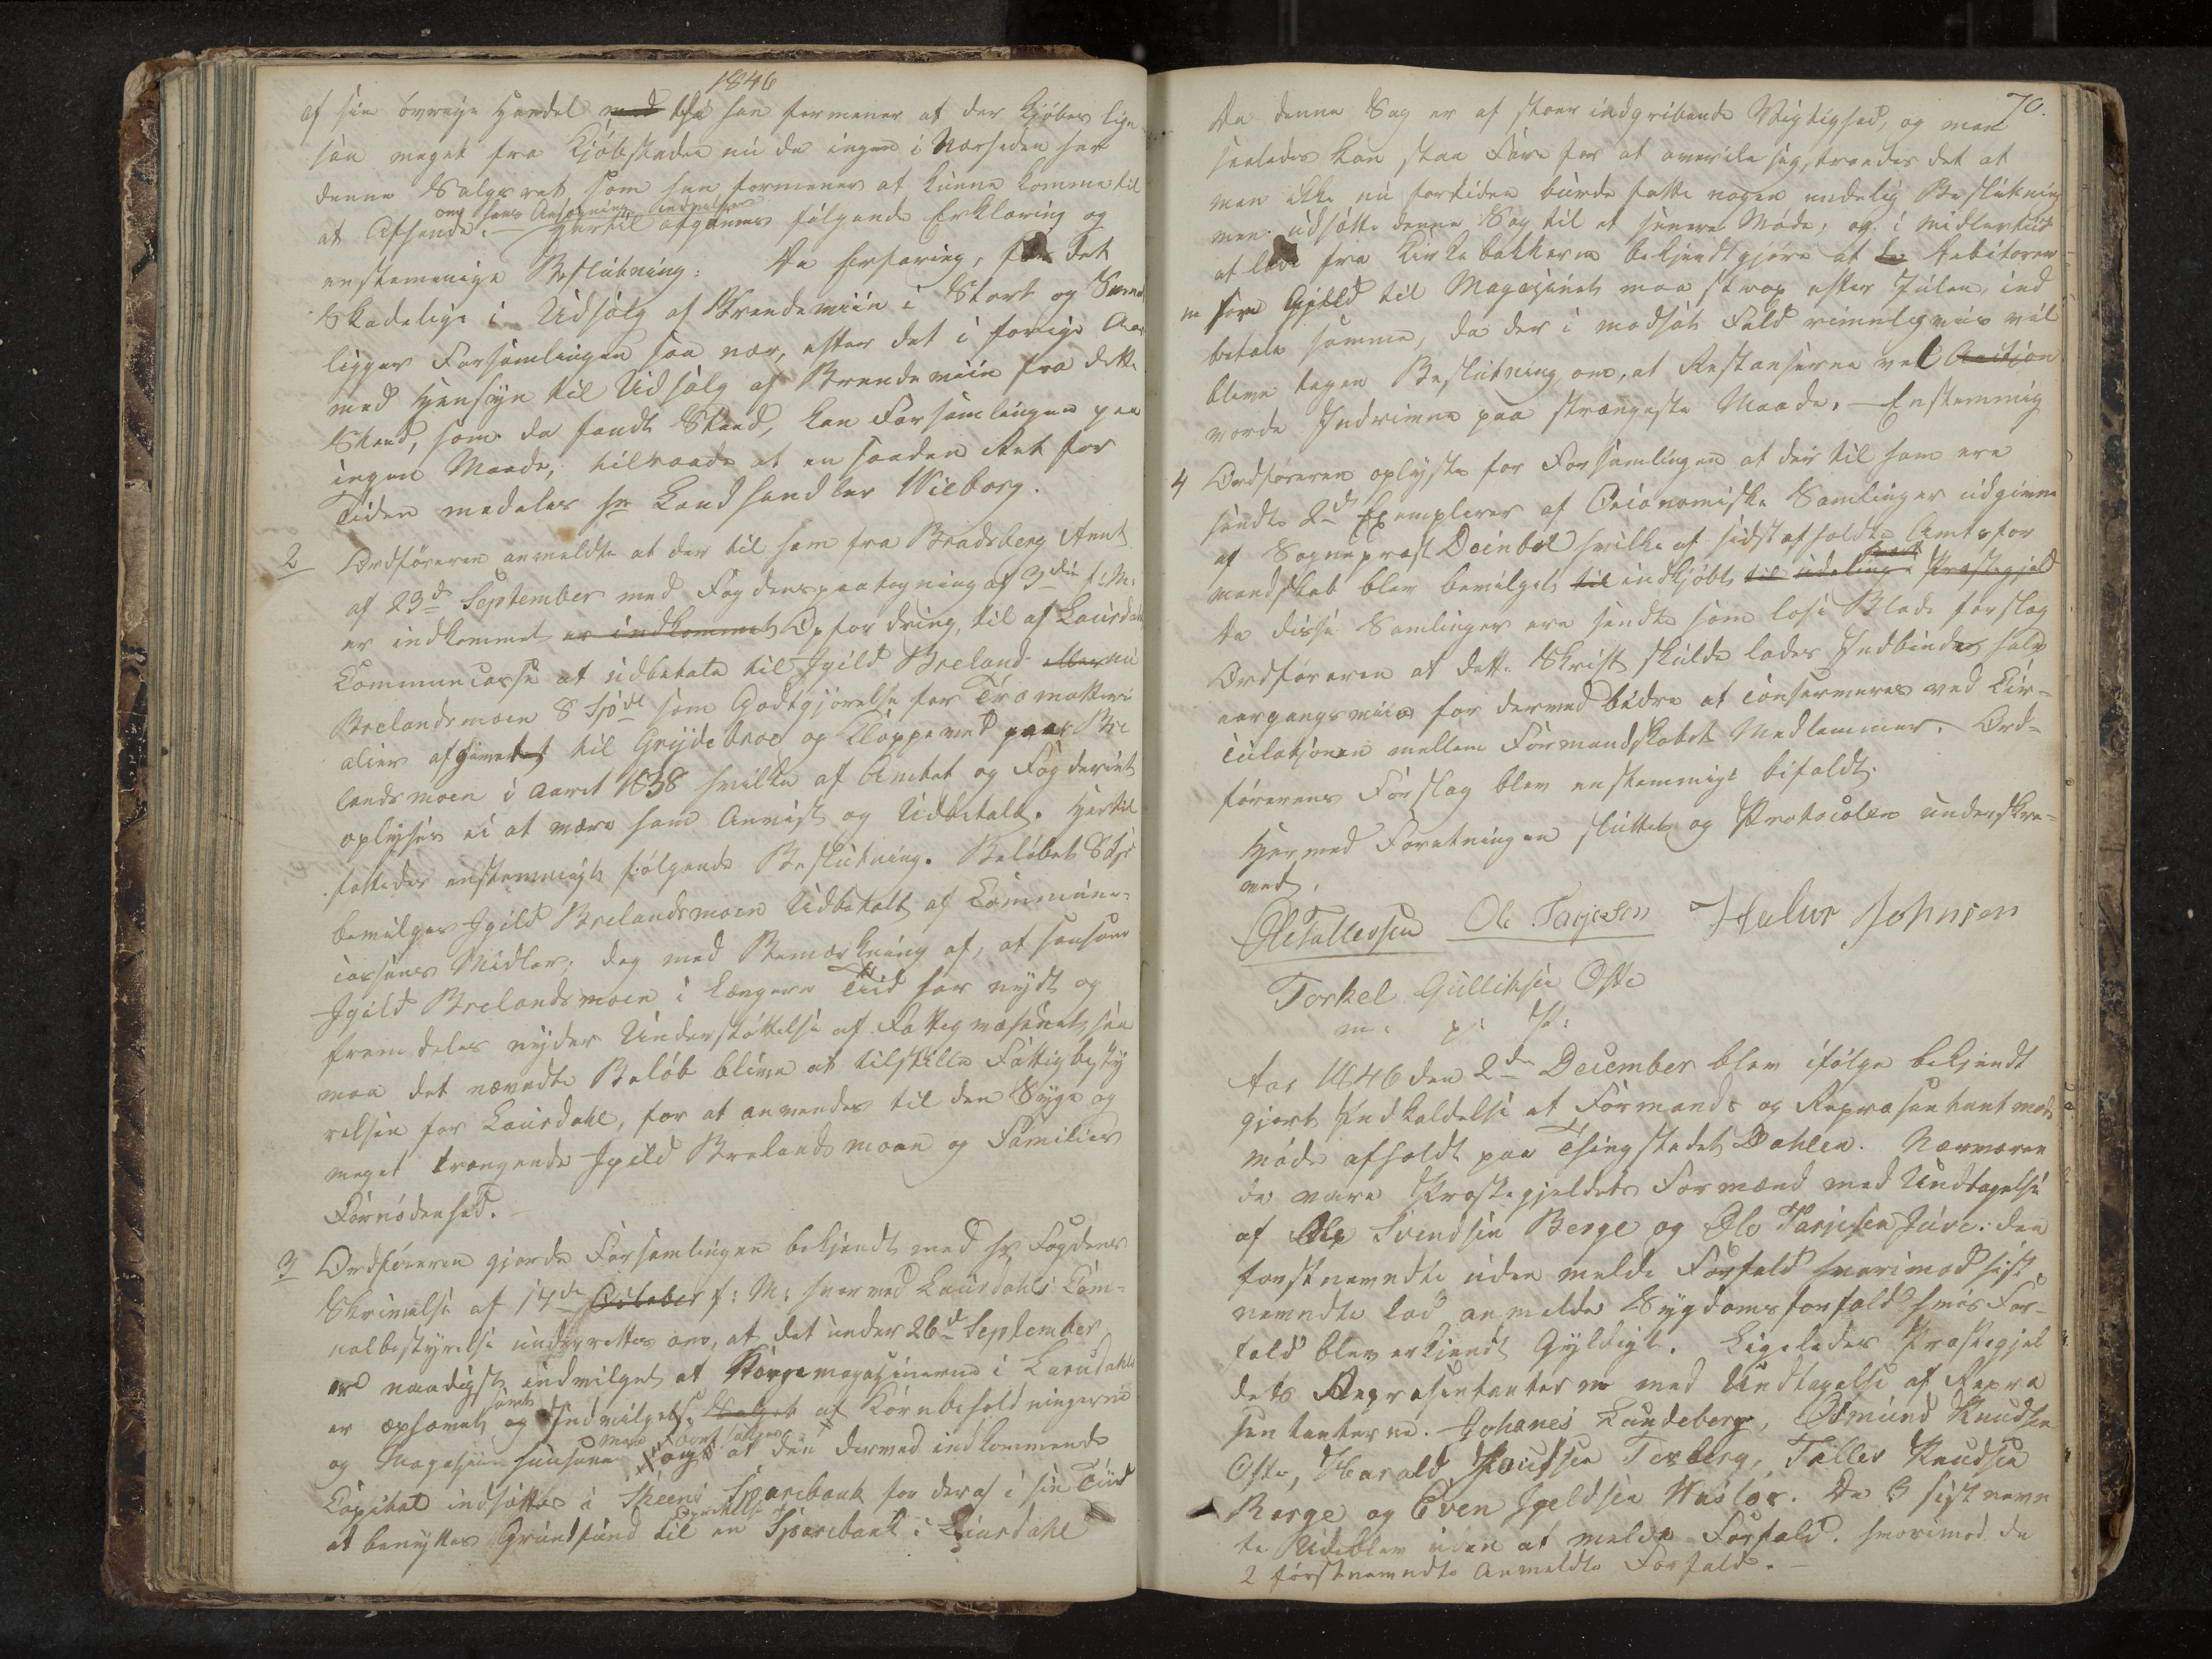 1846
af sin övrige Handel med då han formener at der kjöbes lige
saa meget fra Kjöbstaden nu da ingen i Nærheden har
denne Salgsret som han formener at kunne komme til
om hans Ansøgning indvilges
at Afhænde. – Hertil afgaves følgende Erklæring og
enstemmige Beslutning: Da Erfaring, for det
Skadelige i Udsalg af Brændeviin i Stort og Smaat
ligger Forsamlingen saa nær, efter det i forrige Aar
med Hensyn til Udsalg af Brændeviin fra dette
Sted, som da fandt Sted, kan Forsamlingen paa
ingen Maade, tilraade at en saadan Ret for
Tiden meddeles Hr Landhandler Wieborg.
2 Ordföreren anmeldte at der til ham fra Bradsberg Amt
af 23de September med Fogdenspaategning af 3die f: M:
er indkommet er indkommet Opfordring, til af Laurdahls
Communecasse at udbetale til Igild Breland eller nu
Brelandsmoen 8 Spd som Godtgjörelse for Træmatteri
alier afgivet til Grydebroe og Kloppeved paa Bre
landsmoen i Aaret 1838 hvilke af Amtet og Fogderiet
oplyses ei at være ham Anvist og Udbetalt. Hertil
fattedes enstemmigt følgende Beslutning. Beløbet 8 Spd
bevilges Igild Brelandsmoen Udbetalt af Commune-
cassens Midler; dog med Bemærkning af, at saasom
Igild Brelandsmoen i Længere Tiid har nydt og
fremdeles nyder Understöttelse af Fattigvæsenet, saa
maa det nævndte Beløb blive at tilstille Fattigbesty
relsen for Laurdahl, for at anvendes til den Syge og
meget trængende Igild Brelandsmoen og Families
Fornødenhed.
3 Ordföreren gjorde Forsamlingen bekjendt med Hr Fogdens
Skrivelse af 14de October f: M: hvorved Laurdahls Com-
nalbestyrelse underrettes om, at det under 26de September
er naadigst indvilget at Kornmagaziinerne i Laurdahl
samt
er ophævet og Indvilget, Salget af Kornbeholdningerne
maa sælges
og Magasinhuusene og at den derved indkommende
Capital indsættes i Skeens Sparebank for deraf i sin Tiid
Oprettelse af
at benyttes Grundfund til en Sparebank i Laurdahl
70.
Da denne Sag er af stoer indgribende Vigtighed, og man
saaledes kan staa Fare for at overile sig, troedes det at
man ikke nu fortiden burde fatte nogen endelig Beslutning
men udsætte denne Sag til et senere Møde, og i midlertiid
at lade fra Kirkebakkerne bekjendtgjöre at de Debitorer
som Gjeld til Magazinet maa strax efter Julen, ind
betale samme, da der i modsat Fald rimeligviis vil
blive tagen Beslutning om, at Restanserne ved Auctjon
vorde Inddrevne paa strængeste Maade. – Enstemmig
4 Ordföreren oplyste for Forsamlingen at der til ham ere
sendte 2de Exemplarer af Oeconomiske Samlinger udgivne
af Sognepræst Deinbol hvilke af sidst afholdte Amtsfor
mandskab blev bevilget til indkjöbt til udeling i Præstegjeld
Da disse Samlinger ere sendte som løse Blade forslog
Ordföreren at dette Skrift skulde lades Indbindes halv
aargangsviis for dermed bedre at conserveres ved Cir-
culatjonen mellem Formandskabet Medlemmer. Ord-
förerens Forslag blev enstemmigt bifaldt.
Hermed Foretningen sluttet og Protocolen underskre-
vet.
Ole Tallevsen Ole Tarjesen Halvor Johnsen
Torkel Gulliksen Ofte
m: p: P:
Aar 1846 den 2den December blev ifølge bekjendt
gjort Indkaldelse et Formands og Repræsentantmøde
møde afholdt paa Thingstedet Dahlen. Nærværen
de vare Præstegjeldets Formænd med Undtagelse
af Ole Svendsen Berge og Ole Tarjesen Juve. den
förstnevndte uden melde Forfald hvorimod sidst
nevndte lod anmelde Sygdomsforfald hvis For-
fald blev erkjendt Gyldigt. Ligeledes Præstegjel
dets Repræsentanterne med Undtagelse af Repræ
sentanterne. Johanes Lundeberg, Osmund Knudsen
Ofte, Harald Knudsen Texberg, Tallev Knudsen
Berge og Even Igeldsen Huslos. De 3 sistnevn
te Udeblev uden at melde Forfald. hvorimod de
2 förstnevndte Anmeldte Forfald. –